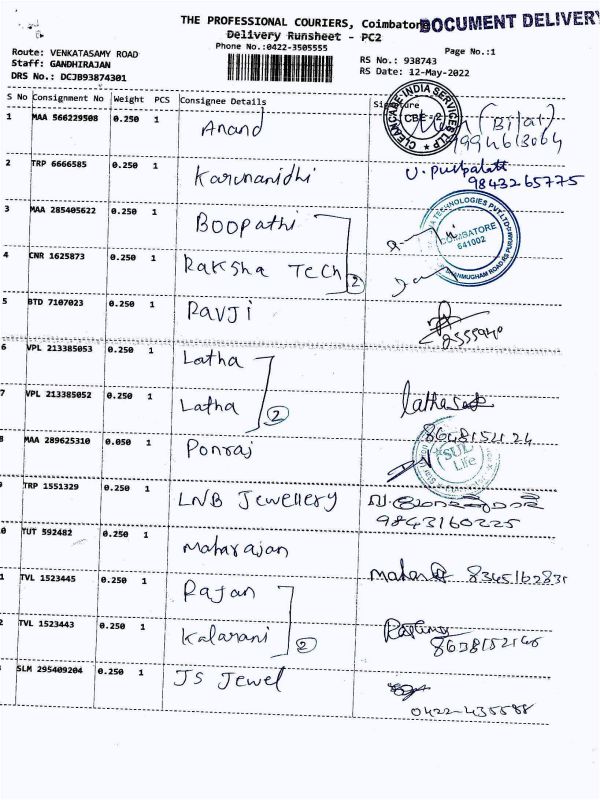 THE PROFESSIONAL COURIERS, Coimbatore
DOCUMENT DELIVERY
Delivery Runsheet - PC2
Phone No.:0422-3505555
Page No.:1
Route: VENKATASAMY ROAD
Staff: GANDHIRAJAN
DRS No.: DCJB93874301
RS No.: 938743
RS Date: 12-May-2022
S No Consignment No Weight PCS Consignee Details Signature
1 MAA 566229508 0.250 1 Anand
CLEANCARE INDIA SERVICES LLP
CBE - 2
(Bilal)
9994613064
2 TRP 6666585 0.250 1 Karunanidhi
9843265775
3 MAA 285405622 0.250 1 Boopathi
TECHNOLOGIES PVT.LTD
COIMBATORE
641002
4 CNR 1625873 0.250 1 Raksha Tech 2
5 BTD 7107023 0.250 1 Ravji
6 VPL 213385053 0.250 1 Latha
7 VPL 213385052 0.250 1 Latha 2
8648152124
8 MAA 289625310 0.050 1 Ponraj
SUD
Life
9 TRP 1551329 0.250 1 LNB Jewellery
9843160225
10 TUT 592482 0.250 1 Maharajan
8345162831
11 TVL 1523445 0.250 1 Rajan
12 TVL 1523443 0.250 1 Kalarani 2
8638152146
SLM 295409204 0.250 1 JS Jewel
0422-435588